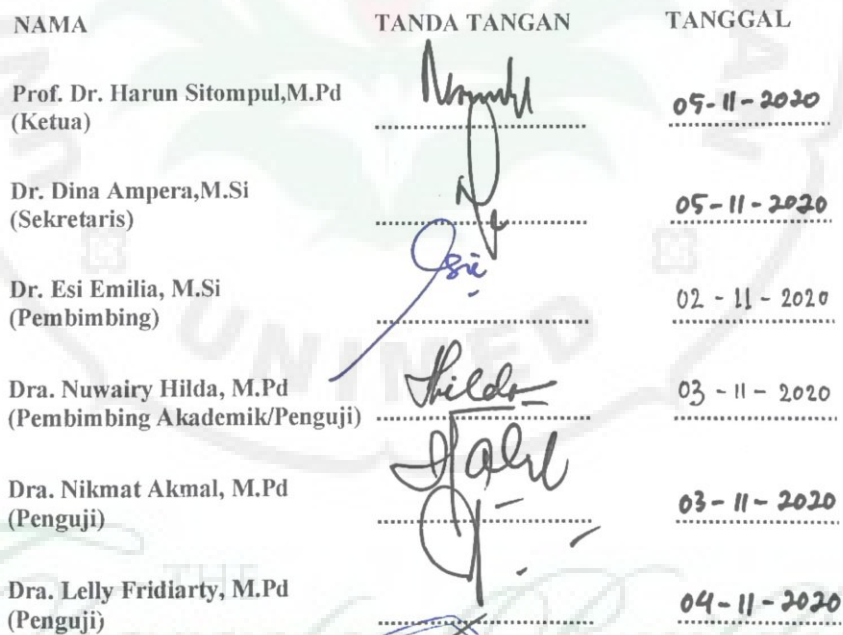 NAMA TANDA TANGAN TANGGAL
Prof. Dr. Harun Sitompul,M.Pd
(Ketua) 05-11-2020
Dr. Dina Ampera,M.Si
(Sekretaris) 05-11-2020
Dr. Esi Emilia, M.Si
(Pembimbing) 02 - 11 - 2020
UNIMED
Dra. Nuwairy Hilda, M.Pd
(Pembimbing Akademik/Penguji) 03 - 11 - 2020
Dra. Nikmat Akmal, M.Pd
(Penguji) 03-11-2020
THE
Dra. Lelly Fridiarty, M.Pd
(Penguji) 04-11-2020